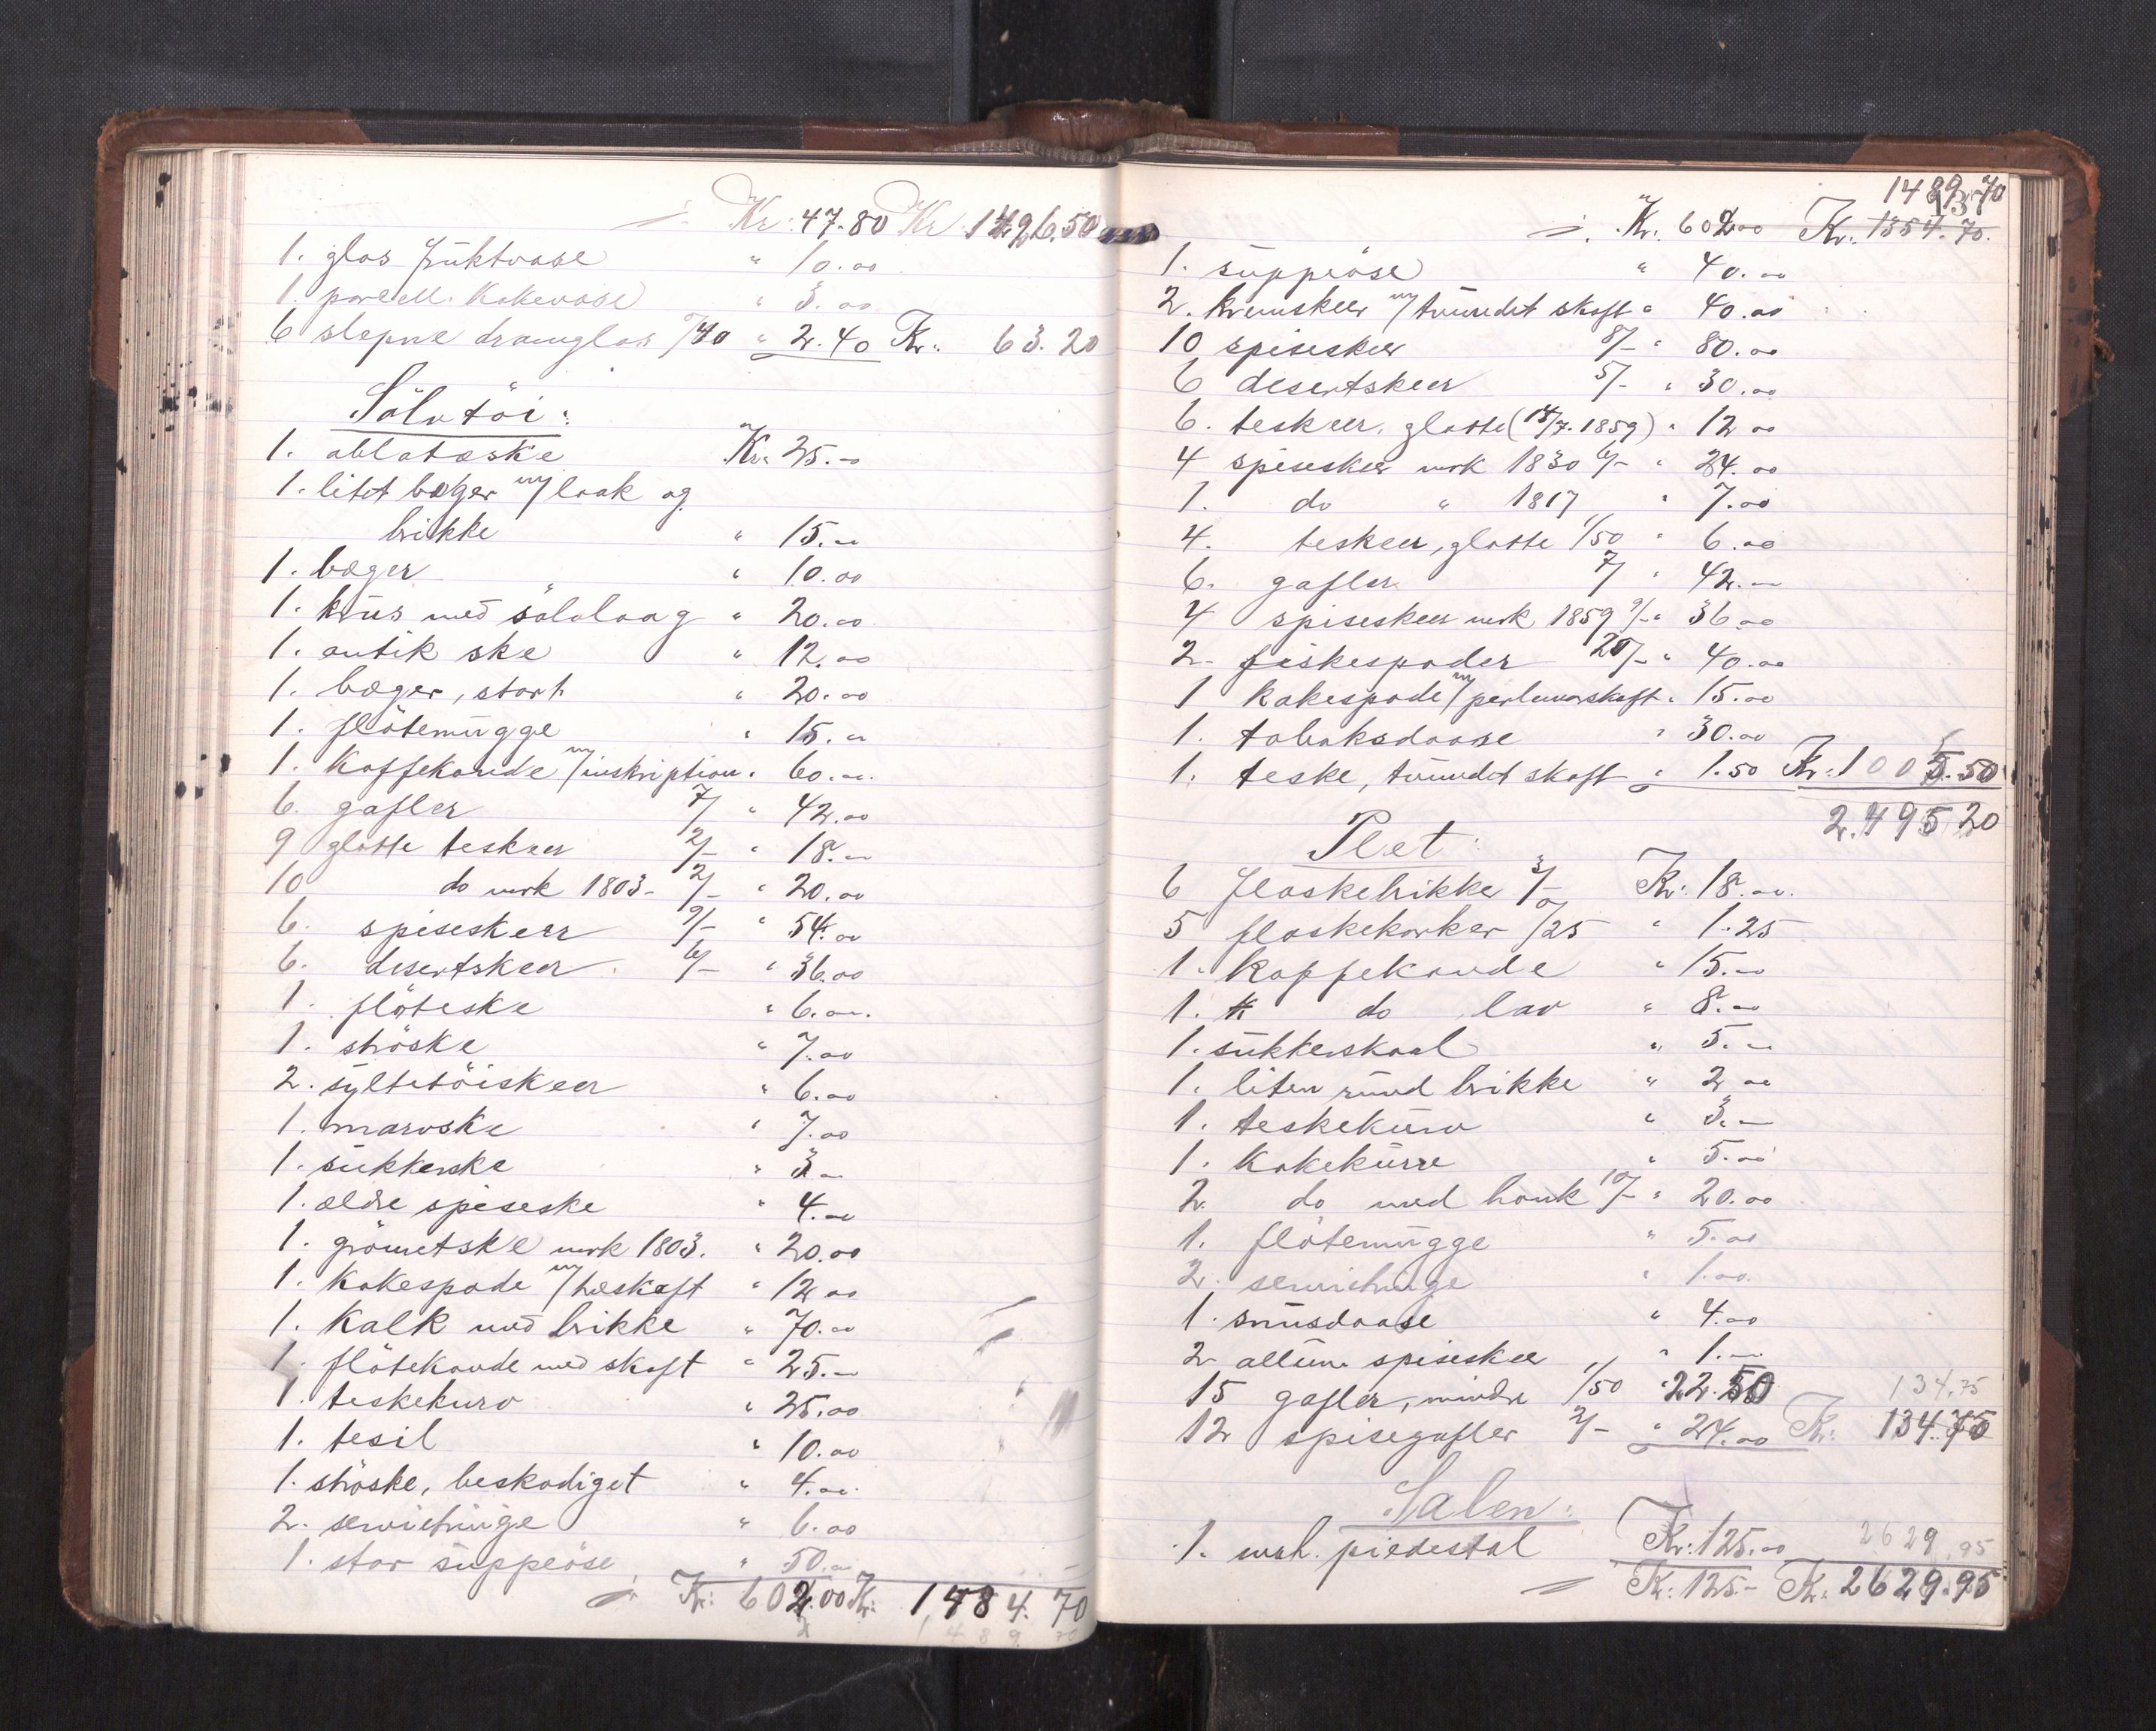 Kr: 47.80 Kr 1426.50
1. glas früktvase " 10.00
1. porcell. Kakevase " 3.00
6 slepne dramglas /40 " 2.40 Kr. 63.20
Sölvtöi:
1. oblatæske Kr. 25.-
1. litet bæger m/ laak og
brikke " 15.-
1. bæger " 10.00
1. krus med sölvlaag " 20.00
1. antik ske " 12.00
1. bæger, stort " 20.00
1. flötemügge " 15.-
1. Kaffekande m/ inskription " 60.-
6. gafler 7/ " 42.00
9 glatte teskeer 2/- " 18.-
10 do mrk 1803- 2/- " 20.00
6. spiseskeer 9/- " 54.00
6. desertskeer 6/- " 36.00
1. flöteske " 6.-
1. ströske " 7.00
2. syltetöiskeer " 6.00
1. marvske " 7.00
1. sükkerske " 3.-
1. ældre spiseske " 4.-
1. grömetske mrk 1803. " 20.00
1. Kakespade m/ træskaft " 12.00
1. Kalk med brikke " 70.-
1. flötekande med skaft " 25.-
1. teskekurv " 25.00
1. tesil " 10.00
1. ströske, beskadiget " 4.-
2. servietringe " 6.00
1. stor süppeöse " 50.-
Kr: 602.00 Kr: 1484.70
1489.70
1489.70
Kr. 602.00 Kr. 1354.70.
1. süppeöse " 40.-
2. kremskeer m/ tvundet skaft " 40.00
10 spiseskeer 8/- " 80.00
6 desertskeer 5/- " 30.00
6. teskeer, glatte (18/7. 1859) " 12.00
4 spiseskeer mrk 1830 6/- " 24.00
1. do " 1817 " 7.00
4. teskeer, glatte 1/50 " 6.00
6. gafler 7/ " 42.-
4 spiseskeer mrk 1859 9/- " 36.00
2. fiskespader 20/- " 40.00
1 kakespade m/ perlemorskaft " 15.00
1. tobaksdaase " 30.00
1. teske, tvundet skaft " 1.50 Kr: 1005.50
2.495 20
Plet:
6 flaskebrikke 3/- Kr: 18.-
5 flaskekorker /25 " 1.25
1. Kaffekande " 15.-
1. do lav " 8.00
1. sükkerskaal " 5.-
1. liten rund brikke " 2.-
1. teskekürv " 3.-
1. Kakekürv " 5.00
2. do med hank 10/- " 20.00
1. flötemügge " 5.00
2. servietringe " 1.00.
1. snüsdaase " 4.00
2 allüm. spiseskeer " 1.-
15 gafler, mindre 1/50 " 22.50 134.75
12 spisegafler 2/- " 24.00 Kr: 134.75
Salen:
1. mah. piedestal Kr: 125.00 2629.95
Kr: 125- Kr. 2629.95